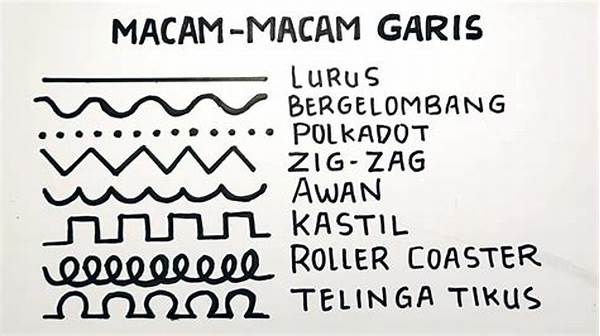 MACAM-MACAM GARIS
LURUS
BERGELOMBANG
POLKADOT
ZIG-ZAG
AWAN
KASTIL
ROLLER COASTER
TELINGA TIKUS